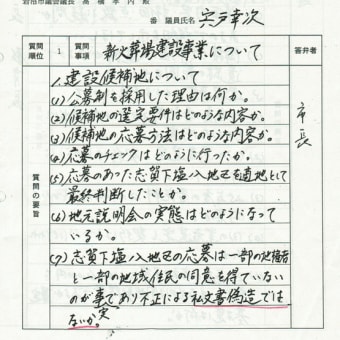 岩沼市議会議長 高橋孝内 殿
番 議員氏名 宍戸幸次
質問順位 1 質問事項 新火葬場建設事業について 答弁者
1.建設候補地について
(1)公募制を採用した理由は何か。
(2)候補地の選定要件はどのような内容か。
(3)候補地の応募方法はどのような内容か。
(4)応募のチェックはどのように行ったか。
(5)応募のあった志賀下塩ノ入地区を適地として
最終判断したことか。
(6)地元説明会の実態はどのようになって
いるか。
(7)志賀下塩ノ入地区の応募は一部の地権者
と一部の地域住民の同意を得ていない
のが事実であり不正による私文書偽造では
ないか。
質問の要旨
市長